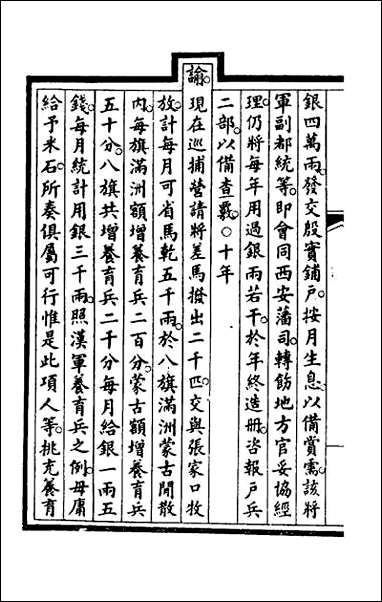 銀四萬兩。發交殷實鋪戶。按月生息。以備賞需。該將
軍副都統等。即會同西安藩司。轉飭地方官妥協經
理。仍將每年用過銀兩若干。於年終造冊。咨報戶兵
二部。以備查覈。○十年
諭。現在巡捕營請將差馬撥出二千匹。交與張家口牧
放。計每月可省馬乾五千兩。於八旗滿洲蒙古閒散
內。每旗滿洲額增養育兵二百分。蒙古額增養育兵
五十分。八旗共增養育兵二千分。每月給銀一兩五
錢。每月統計用銀三千兩。照漢軍養育兵之例。毋庸
給予米石。所奏俱屬可行。惟是此項人等。挑充養育